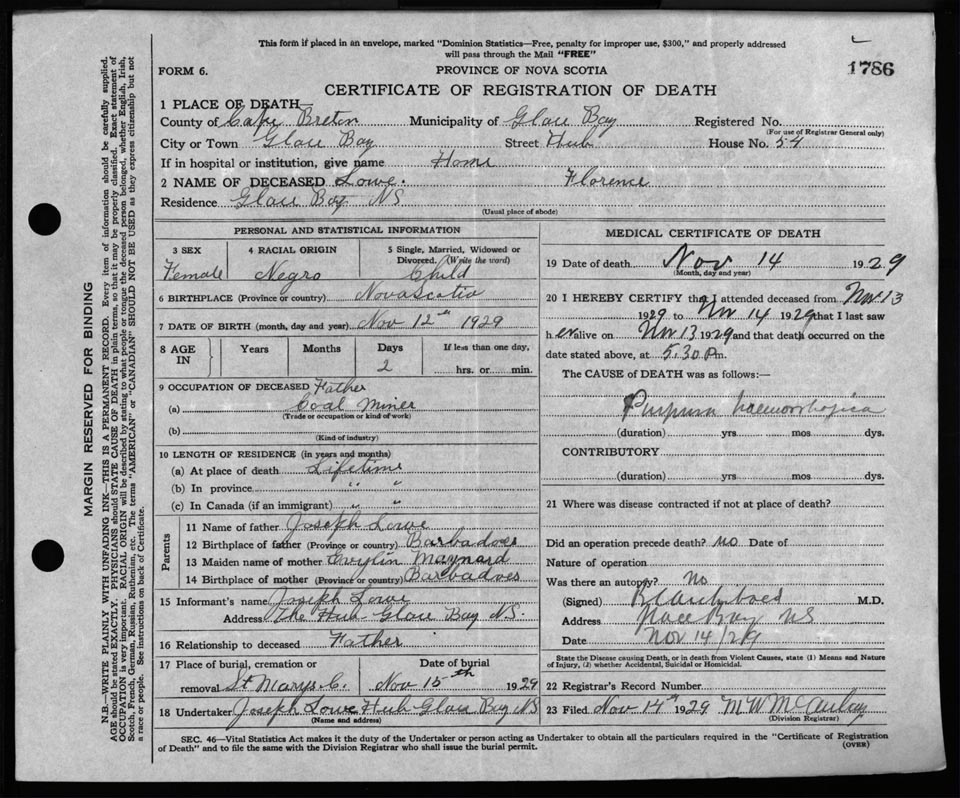 This form if placed in an envelope, marked "Dominion Statistics—Free, penalty for improper use, $300," and properly addressed
will pass through the Mail "FREE"
FORM 6.
PROVINCE OF NOVA SCOTIA
1786
CERTIFICATE OF REGISTRATION OF DEATH
1 PLACE OF DEATH—
County of Cape Breton Municipality of Glace Bay Registered No.
(For use of Registrar General only)
City or Town Glace Bay Street Hub House No. 54
If in hospital or institution, give name Home
2 NAME OF DECEASED Lowe. Florence
Residence Glace Bay NS
(Usual place of abode)
PERSONAL AND STATISTICAL INFORMATION
3 SEX
Female
4 RACIAL ORIGIN
Negro
5 Single, Married, Widowed or
Divorced. (Write the word)
Child
6 BIRTHPLACE (Province or country) Nova Scotia
7 DATE OF BIRTH (month, day and year) Nov 12th 1929
8 AGE
IN
Years
Months
Days
2
If less than one day,
hrs. or min.
9 OCCUPATION OF DECEASED Father
(a) Coal Miner
(Trade or occupation or kind of work)
(b)
(Kind of industry)
10 LENGTH OF RESIDENCE (in years and months)
(a) At place of death Lifetime
(b) In province " "
(c) In Canada (if an immigrant) " "
Parents
11 Name of father Joseph Lowe
12 Birthplace of father (Province or country) Barbadoes
13 Maiden name of mother Evylin Maynard
14 Birthplace of mother (Province or country) Barbadoes
15 Informant's name Joseph Lowe
Address The Hub Glace Bay NS.
16 Relationship to deceased Father
17 Place of burial, cremation or
removal St Marys C.
Date of burial
Nov 15th 1929
18 Undertaker Joseph Lowe Hub Glace Bay NS
(Name and address)
MEDICAL CERTIFICATE OF DEATH
19 Date of death Nov 14 1929
(Month, day and year)
20 I HEREBY CERTIFY that I attended deceased from Nov. 13
1929 to Nov 14 1929 that I last saw
h er alive on Nov 13 1929 and that death occurred on the
date stated above, at 5.30 Pm.
The CAUSE of DEATH was as follows:—
Purpura haemorrhagica
(duration) yrs. mos. dys.
CONTRIBUTORY
(duration) yrs. mos. dys.
21 Where was disease contracted if not at place of death?
Did an operation precede death? no Date of
Nature of operation
Was there an autopsy? no
(Signed) M.D.
Address Glace Bay NS
Date Nov 14/29
State the Disease causing Death, or in death from Violent Causes, state (1) Means and Nature
of Injury, (2) whether Accidental, Suicidal or Homicidal.
22 Registrar's Record Number
23 Filed Nov 14th 1929 M W McAulay
(Division Registrar)
SEC. 46—Vital Statistics Act makes it the duty of the Undertaker or person acting as Undertaker to obtain all the particulars required in the "Certificate of Registration
of Death" and to file the same with the Division Registrar who shall issue the burial permit.
(OVER)
MARGIN RESERVED FOR BINDING
N.B.—WRITE PLAINLY WITH UNFADING INK—THIS IS A PERMANENT RECORD. Every item of information should be carefully supplied.
AGE should be stated EXACTLY. PHYSICIANS should STATE CAUSE OF DEATH in plain terms, so that it may be properly classified. Exact statement of
OCCUPATION is very important. RACIAL ORIGIN will be described by stating to what people or tongue the deceased person belonged, whether English, Irish,
Scotch, French, German, Russian, Ruthenian, etc. The terms "AMERICAN" or "CANADIAN" SHOULD NOT BE USED as they express citizenship but not
a race or people. See instructions on back of Certificate.